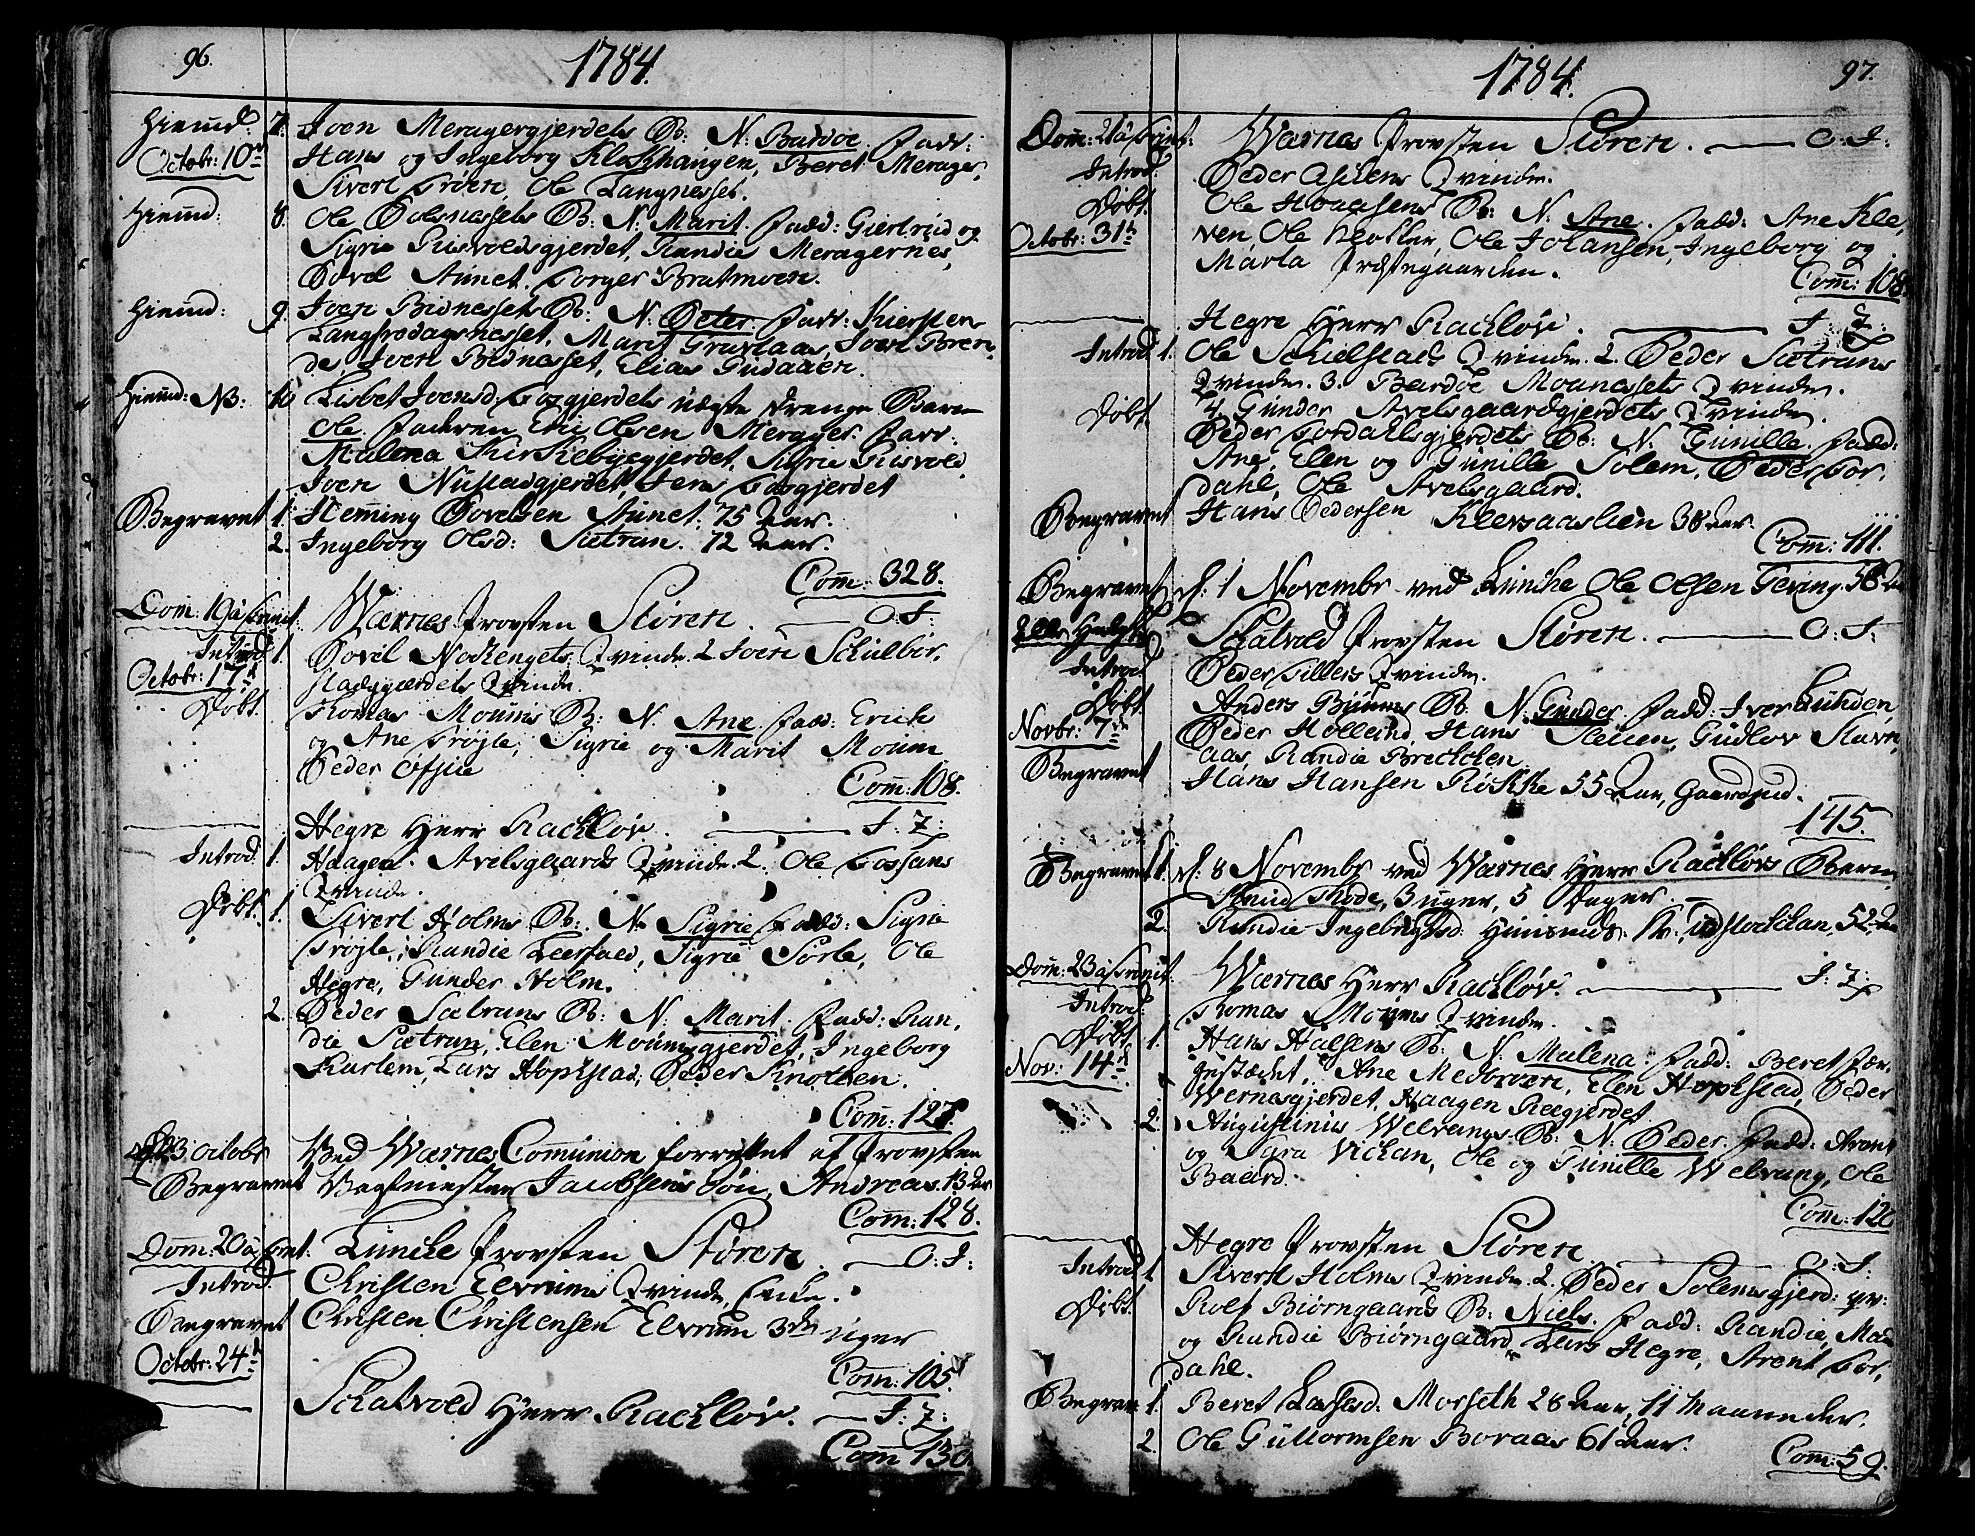 96.
1784.
Hiemd: 7. Joen Meragergjerdets B: N: Bardoe. Fadr:
Octobr: 10de Hans og Ingeborg Klokhaugen, Beret Merager,
Sivert Groen, Ole Langnesset.
Hiemd: 8. Ole Dolsnessets B: N: Marit. Fadd: Giertrud og
Sigrie Risvoldsgjerdet, Randie Meragernes,
Povel Aunet, Torger Bratmoen.
Hiemd: 9. Joen Bidnessets B: N: Peter. Fadr: Kiersten
Langfrodagsnesset, Marit Gravlaas, Joen Bren,
de, Joen Bidnesset, Elias Gudaaen.
Hiemd: NB: 10 Lisbet Joensd: gjerdets uægte Drenge Barn
Ole. Faderen Eric Olsen Merager. Fadr:
Malena Kirkebyegjerdet, Sigrie Risvold,
Joen gjerdet, Jens gjerdet
Begravet 1. Hemming Povelsen Aunet. 75 Aar.
2. Ingeborg Olsd: Sætran. 72 Aar.
Com: 328.
Dom: 19 à Trinit: Wærnes Provsten Stören. — O: T:
Introd. 1. Povil Nokengets Qvinde. 2 Joen Schulbor,
Octobr: 17de stadgjerdets Qvinde.
Döbt. Thomas Moums B: N: Ane. Fad: Erich
og Ane Tröyte, Sigrie og Marit Moum
Peder
Com: 108.
Hegre Herr Rachlöv. — T: 7:
Introd. 1. Haagen Avelsgaards Qvinde. 2. Ole Fossans
Qvinde.
Döbt. 1. Sivert Holms B: N: Sigrie Fadd: Sigrie
Tröyte, Randie Leerfald, Sigrie Sorte, Ole
Hegre, Gunder Holm.
2. Peder Sætrans B: N: Marit. Fadd: Ran,
die Sætran, Elen Moumsgjerdet, Ingeborg
Karlem, Lars Hopstad, Peder
Com: 127.
d. 23 Octobr Ved Wærnes Communion forrettet af Provsten
Begravet Vagtmester Jacobsens Sön, Andreas. 13 Aar
Com: 128.
Dom: 20 à Trint: Lunche Provsten Stören. — O: T:
Introd. Christen Elvrums Qvinde, Enke.
Begravet Christen Christensen Elvrum 3 Uger
Octobr: 24de
Com: 105.
Schatvold Herr Rachlöv. — T: 7:
Com: 130.
1784.
97.
Dom: 21 à Trinit: Wærnes Provsten Stören. — O: T:
Introd. Peder Qvinde.
Döbt. Ole Hoaasens B: N: Ane. Fadd: Ane Kle,
Octobr: 31te ven, Ole Kloster, Ole Johansen, Ingeborg og
Marta Præstegaarden.
Com: 108.
Hegre Herr Rachlöv. — T: 7:
Introd. 1. Ole Schielstads Qvinde. 2. Peder Sætrans
Qvinde. 3. Bardoe Moanessets Qvinde.
4. Gunder Avelsgaardgjerdets Qvinde.
Döbt. Peder Fordahlsgjerdets B: N: Gunille. Fadd:
Ane, Elen og Gunille Solem, Peder For,
dahl, Ole Avelsgaard.
Begravet Hans Pedersen Klevsaaslien 38 Aar.
Com: 111.
Begravet d: 1 Novembr ved Lunche Ole Olsen Gevring. 58 Aar
Alle Helgen Schatvold Provsten Stören. — O: T:
Introd. Peder Tillers Qvinde.
Döbt. Anders Buums B: N: Gunder. Fadd: Iver Lunden,
Novbr: 7de Peder Holland, Hans Steuen, Gudlov Stavn,
aas, Randie Brechken.
Begravet Hans Hansen Rökke 55 Aar, Gaardmd.
145.
Begravet 1. d: 8 Novembr ved Wærnes Herr Rachlövs Barn,
Knud Thode, 3 uger, 5 Dager.
2. Randie Ingebrigtsd: Huusmds K: 52 Aar
Dom: 23 à Trinit. Wærnes Herr Rachlöv. — T: 7:
Introd. Thomas Moums Qvinde.
Döbt. 1. Hans Halsens B: N: Malena. Fadd: Beret Fær,
Nov: 14de gestædet, Ane Medbroen, Elen Hopstad, Peder
Wernesgjerdet, Haagen Reegjerdet
2. Augustinius Welvangs B: N: Peder. Fadd: Arent
og Sara Vickan, Ole og Gunille Welvang, Ole
Baard.
Com: 120
Hegre Provsten Stören. — O: T:
Introd. 1. Sivert Holms Qvinde. 2. Peder Solemsgjerd: qv:
Döbt. Rolf Biörngaards B: Niels. Fadd: Randie, Mar
og Randie Biörngaard, Lars Hegre, Arent For,
dahl.
Begravet 1. Beret Larsd. Morseth 28 Aar, 11 Maaneder.
2. Ole Guttormsen Boraas 61 Aar.
Com: 59.